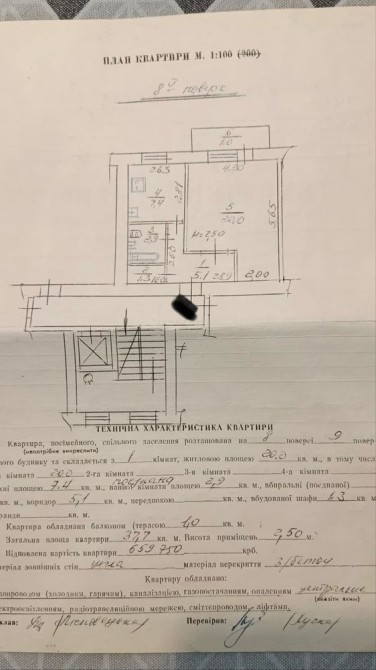 ПЛАН КВАРТИРИ М. 1:100 (200)
8й поверх
6
1,0
2,65
4,20
4
7,4
2,81
5
20,0
5,65
3
2,9
2,63
h=2,50
2
1
5,1
2,89
2,00
ТЕХНІЧНА ХАРАКТЕРИСТИКА КВАРТИРИ
Квартира, посімейного, спільного заселення розташована на 8 поверсі 9 повер-
(непотрібне викреслити)
ого будинку та складається з 1 кімнат, житловою площею 20,0 кв. м, в тому числі
кімната 20,0 2-га кімната 3-я кімната 4-а кімната
ні площею 7,4 кв. м, ванної кімнати площею 2,9 кв. м, вбиральні (поєднаної)
кв. м, коридор 5,1 кв. м, передпокою кв. м, вбудованої шафи 1,3 кв. м
кв. м.
Квартира обладнана балконом (терасою) 1,0 кв. м.
Загальна площа квартири 37,7 кв. м. Висота приміщень 2,50 м.
Відновлена вартість квартири 659 750 крб.
теріал зовнішніх стін цегла матеріал перекриття з/бетон
Квартиру обладнано:
опроводом (холодним, гарячим), каналізацією, газопостачанням, опаленням центральне
(вказати яким)
ектроосвітленням, радіотрансляційною мережею, сміттєпроводом, ліфтами,
клав: Перевірив: